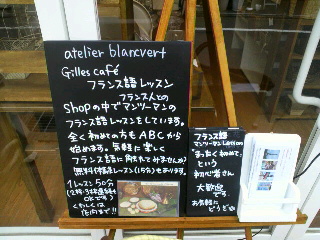 atelier blancvert
Gilles café
フランス語レッスン
フランス人との
Shopの中でマンツーマンの
フランス語レッスンをしています。
全く初めての方もABCから
始めます。気軽に楽しく
フランス語に触れてみませんか?
無料体験レッスン(15分)もあります。
1レッスン50分
OKです
くわしくは
店内まで!!
フランス語
マンツーマンLesson
まったく初めて
という
初心者さん
大歓迎
です
お気軽に
どうぞ